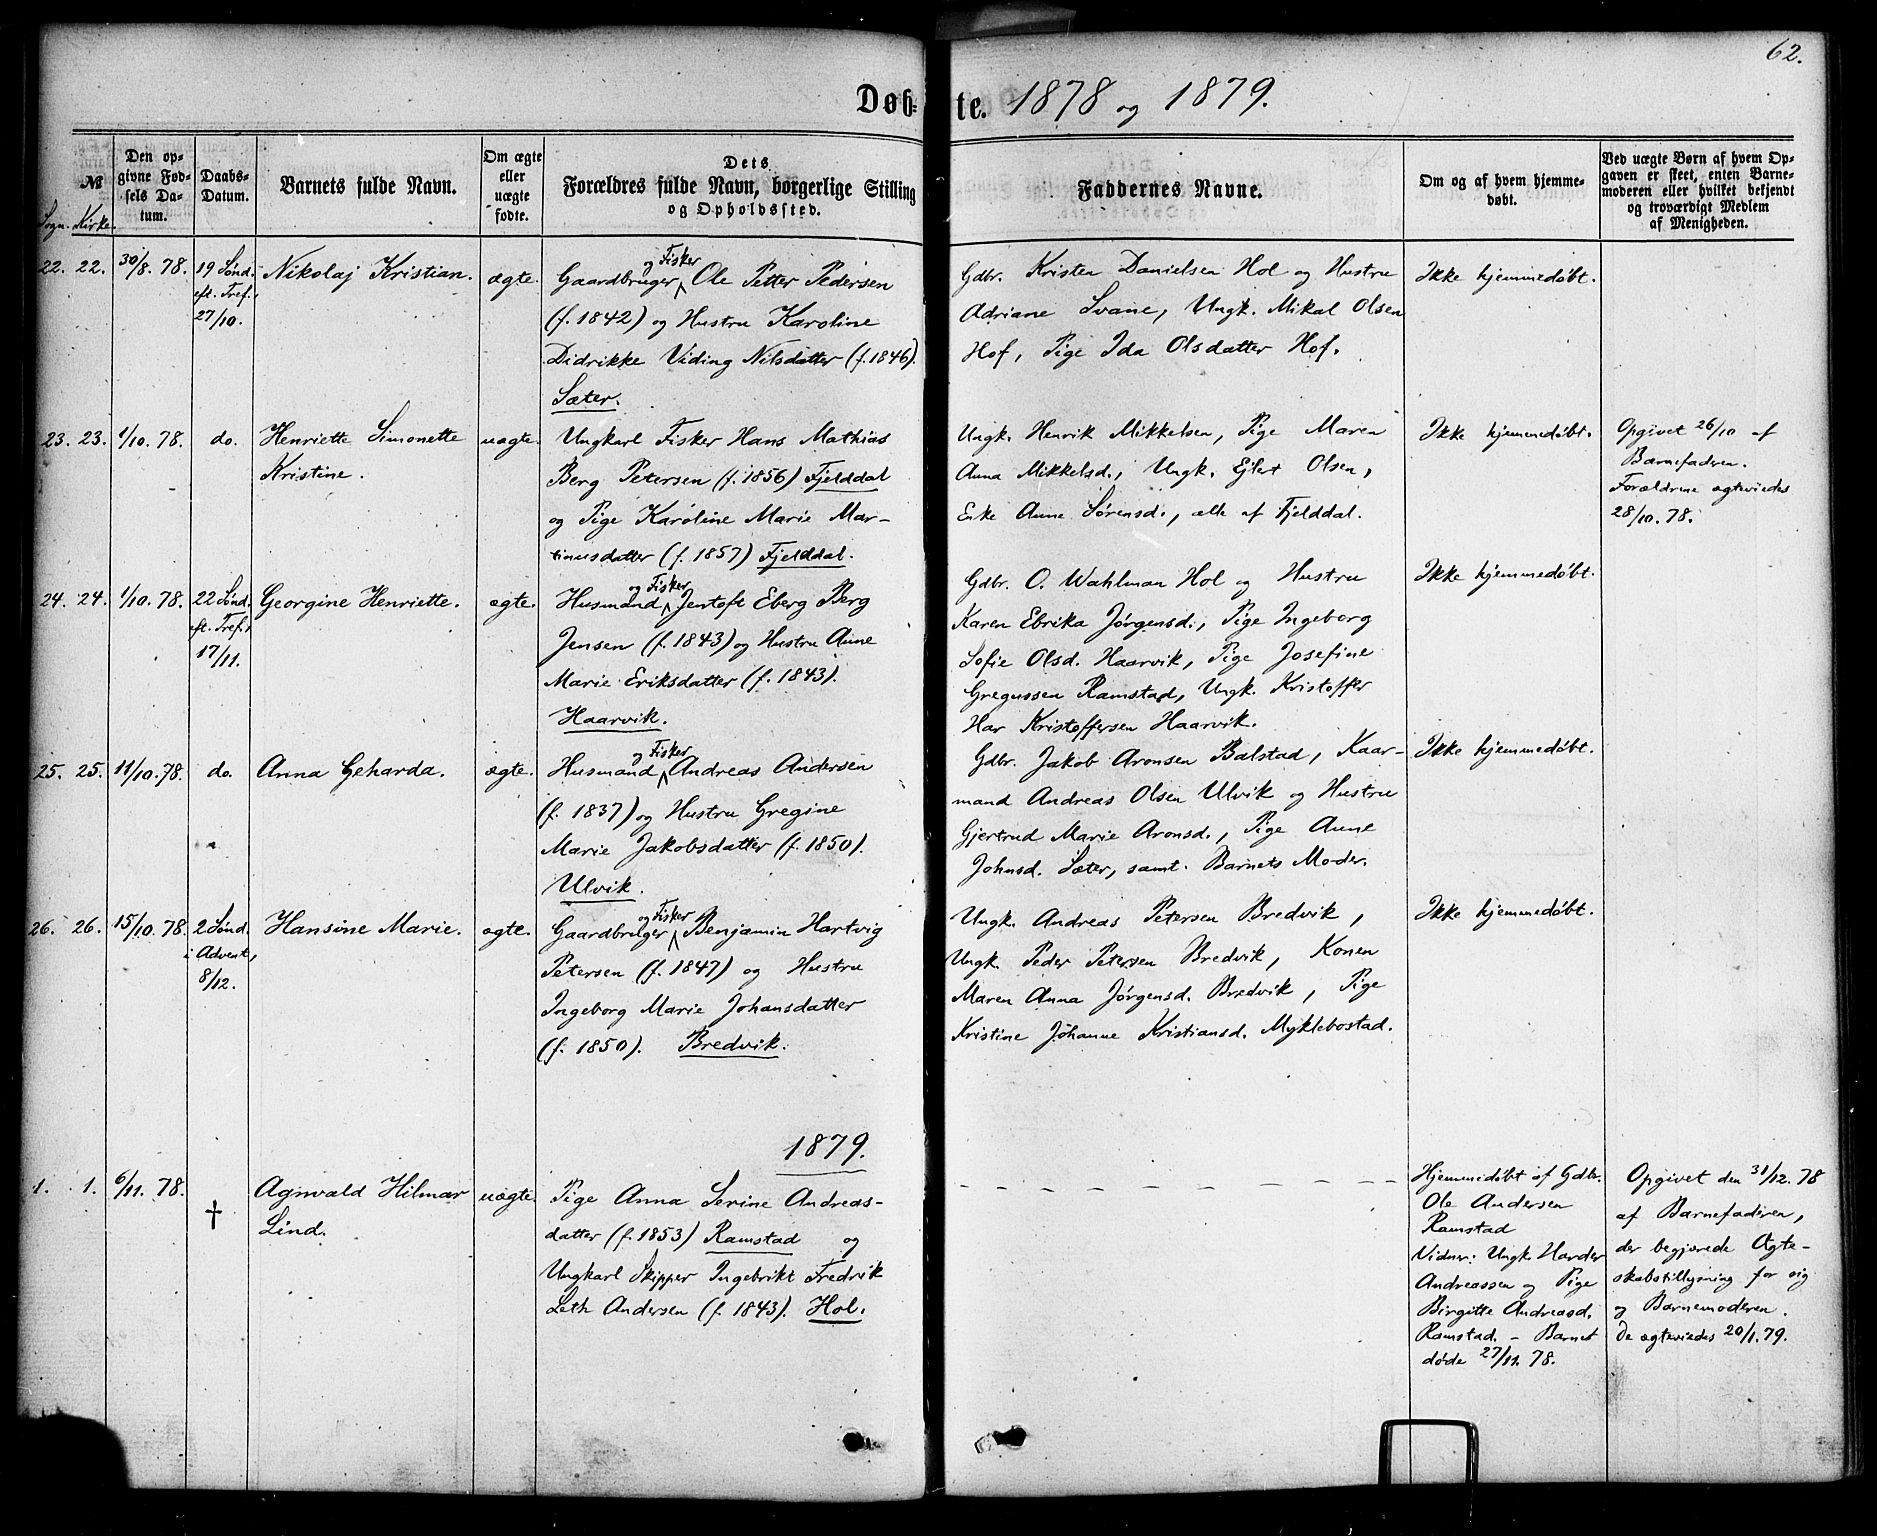 62.
Døbte. 1878 og 1879.
№
Sogn. Kirke.
Den opgivne Fødsels Datum.
Daabs-Datum.
Barnets fulde Navn.
Om ægte eller uægte fødte.
Dets Forældres fulde Navn, borgerlige Stilling og Opholdssted.
Faddernes Navne.
Om og af hvem hjemmedøbt.
Ved uægte Børn af hvem Opgaven er skeet, enten Barnemoderen eller hvilket bekjendt og troværdigt Medlem af Menigheden.
22. 22. 30/8. 78.
19 Sønd.
eft. Tref.,
27/10.
Nikolaj Kristian.
ægte.
Gaardbruger og Fisker Ole Petter Pedersen
(f. 1842) og Hustru Karoline
Didrikke Viding Nilsdatter (f. 1846).
Sæter.
Gdbr. Kristen Danielsen Hol og Hustru
Adriane Svane, Ungk. Mikal Olsen
Hof, Pige Ida Olsdatter Hof.
Ikke hjemmedøbt.
23. 23. 1/10. 78.
do.
Henriette Simonette
Kristine.
uægte.
Ungkarl Fisker Hans Mathias
Berg Petersen (f. 1856) Fjelddal
og Pige Karoline Marie Mar-
tinusdatter (f. 1857) Fjelddal.
Ungk. Henrik Mikkelsen, Pige Maren
Anna Mikkelsd., Ungk. Ejlert Olsen,
Enke Anne Sørensd., alle af Fjelddal.
Ikke hjemmedøbt.
Opgivet 26/10 af
Barnefaderen.
Forældrene ægteviedes
28/10. 78.
24. 24. 1/10. 78.
22 Sønd.
eft. Tref.,
17/11.
Georgine Henriette.
ægte.
Husmand og Fisker Jentoft Eberg Berg
Jensen (f. 1843) og Hustru Anne
Marie Eriksdatter (f. 1843).
Haarvik.
Gdbr. O. Wahlman Hol og Hustru
Karen Ebrika Jørgensd., Pige Ingeborg
Sofie Olsd. Haarvik, Pige Josefine
Gregussen Ramstad, Ungk. Kristoffer
Har Kristoffersen Haarvik.
Ikke hjemmedøbt.
25. 25. 11/10. 78.
do.
Anna Geharda.
ægte.
Husmand og Fisker Andreas Andersen
(f. 1837) og Hustru Gregine
Marie Jakobsdatter (f. 1850).
Ulvik.
Gdbr. Jakob Aronsen Balstad, Kaar-
mand Andreas Olsen Ulvik og Hustru
Gjertrud Marie Aronsd., Pige Anne
Johnsd. Sæter, samt. Barnets Moder.
Ikke hjemmedøbt.
26. 26. 15/10. 78.
2 Sønd.
i Advent,
8/12.
Hansine Marie.
ægte.
Gaardbruger og Fisker Benjamin Hartvig
Petersen (f. 1847) og Hustru
Ingeborg Marie Johansdatter
(f. 1850). Bredvik.
Ungk. Andreas Petersen Bredvik,
Ungk. Peder Petersen Bredvik, Konen
Maren Anna Jørgensd. Bredvik, Pige
Kristine Johanne Kristiansd. Myklebostad.
Ikke hjemmedøbt.
1879.
1. 1. 6/11. 78.
†
Agnvald Hilmar
Lind.
uægte.
Pige Anna Serine Andreas-
datter (f. 1853) Ramstad og
Ungkarl Skipper Ingebrikt Fredrik
Leth Andersen (f. 1843). Hol.
Hjemmedøbt af Gdbr.
Ole Andersen
Ramstad
Vidner: Ungk. Harder
Andreassen og Pige
Birgitte Andreasd.
Ramstad. – Barnet
døde 27/11. 78.
Opgivet den 31/12. 78
af Barnefaderen,
der begjærede Ægte-
skabstillysning for sig
og Barnemoderen.
De ægteviedes 20/1. 79.